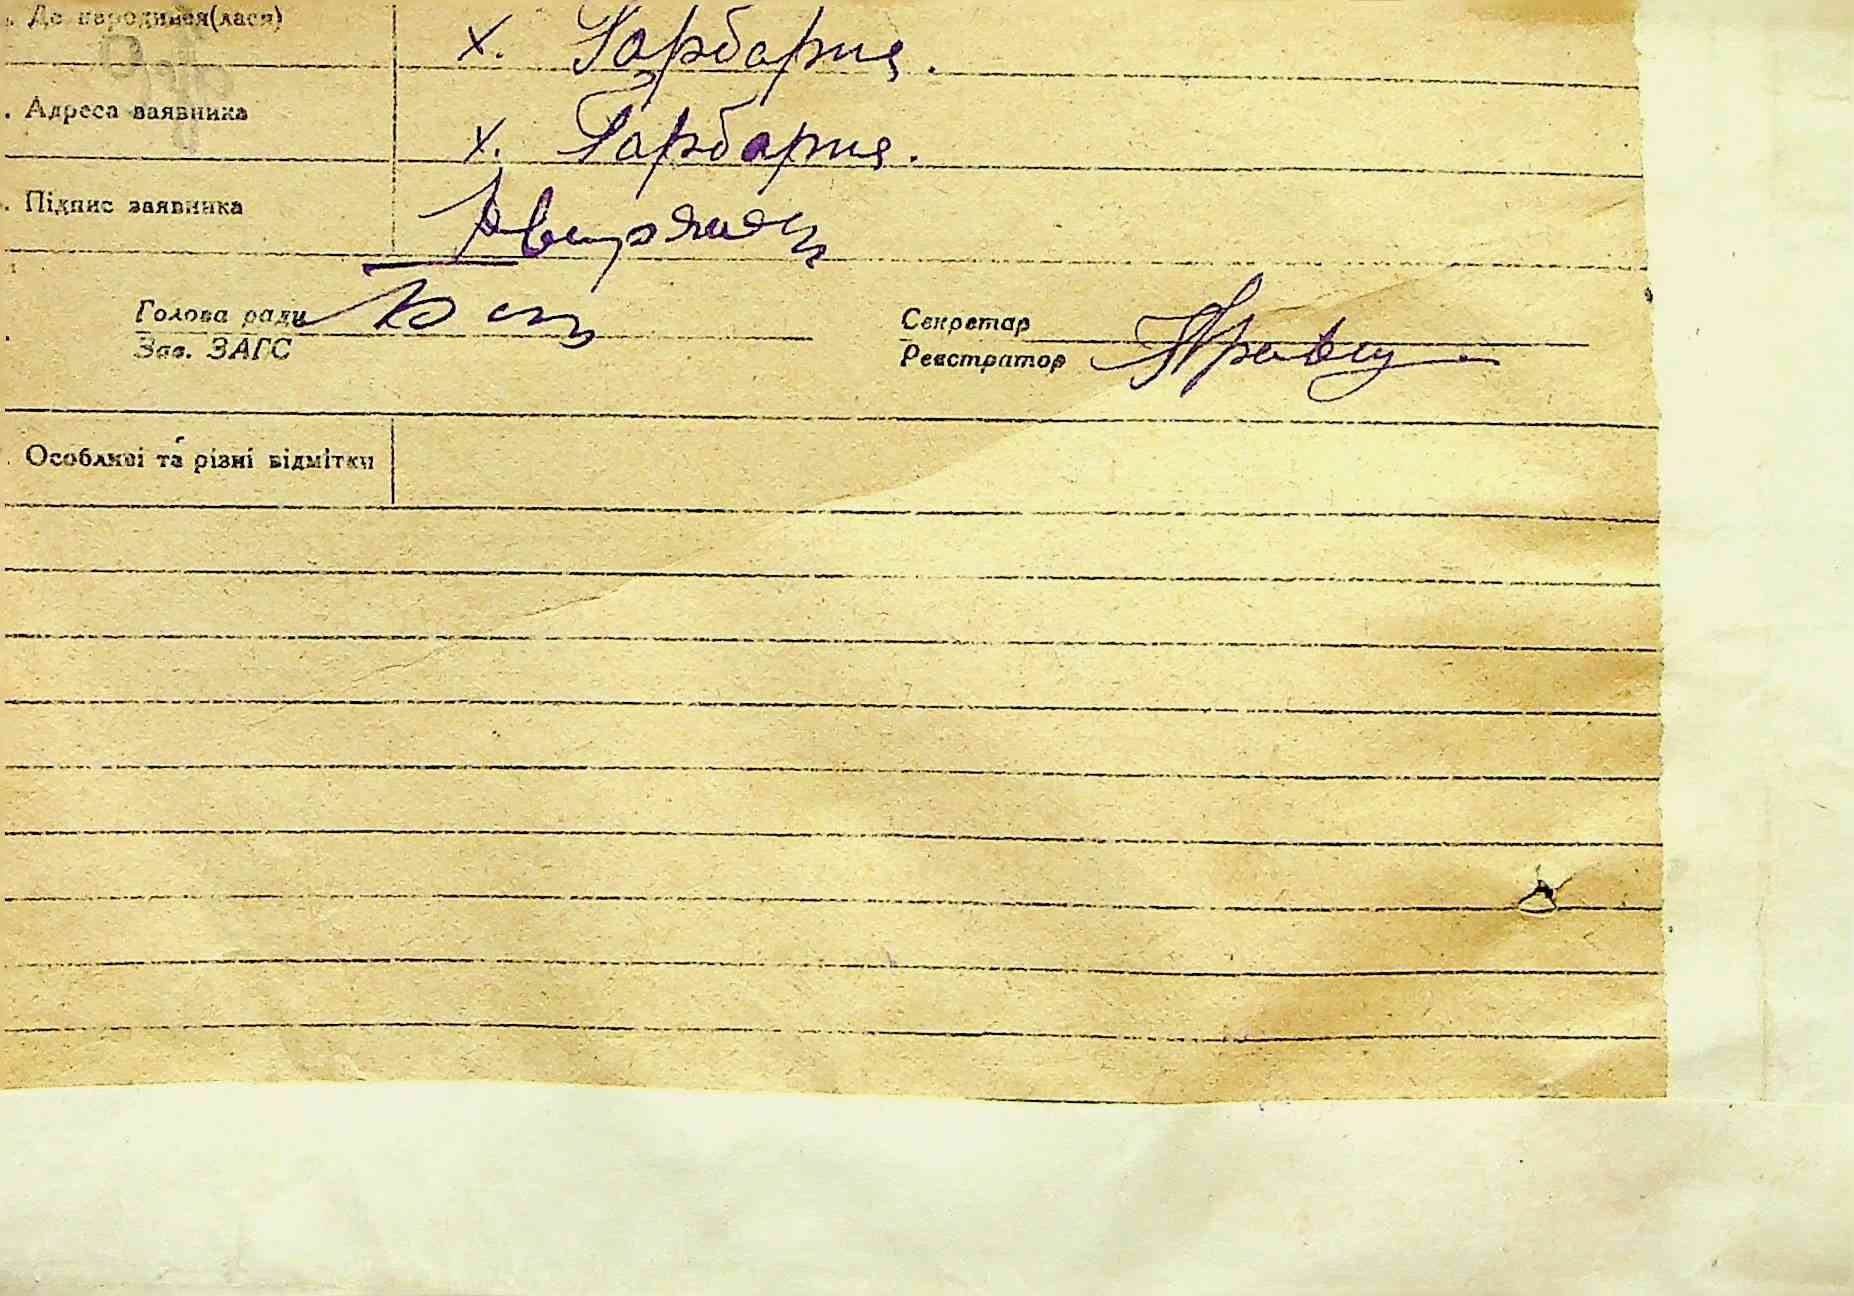 Де народився(лася) х. Гарбарня.
Адреса заявника х. Гарбарня.
Підпис заявника
Голова ради Секретар
Зав. ЗАГС Реєстратор
Особливі та різні відмітки